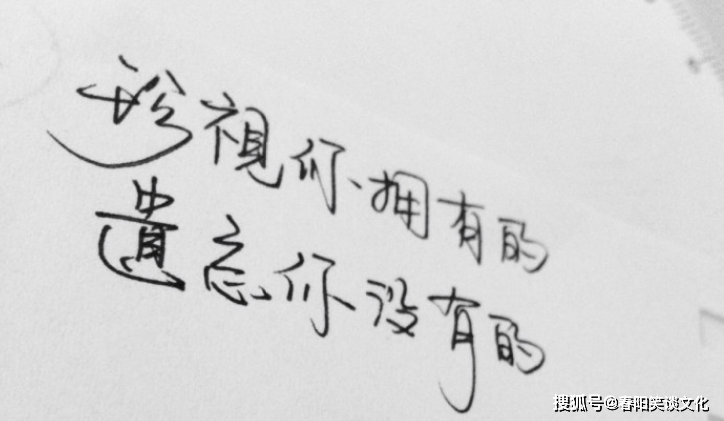 珍视你拥有的
遗忘你没有的
搜狐号@春阳笑谈文化